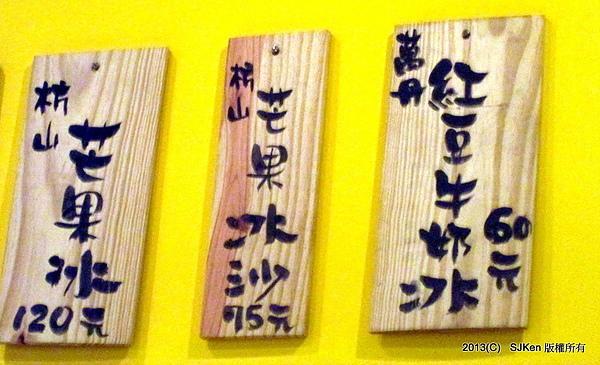 枋山
芒果冰
120元
枋山
芒果冰沙
75元
萬丹
紅豆牛奶冰
60元
2013(C) SJKen 版權所有